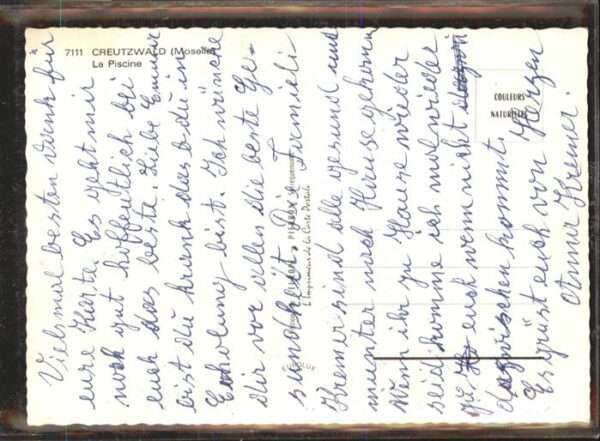 7111 CREUTZWALD (Moselle)
La Piscine
COULEURS
NATURELLES
L'Imprimeur de la Carte Postale
Vielsmal besten Dank für
eure Karte. Es geht mir
noch gut hoffentlich bei
euch das beste. Liebe Emmi
bist du krank das du in
Erholung bist. Ich wünche
dir vor allen die beste Ge-
sundheit. Die Familie
Kremer sind alle gesund und
munter nach Hause gekommen
Wenn ihr zu Hause wieder
seid komme ich mal wieder
zu euch wenn nicht
dazwischen kommt.
Es grüst euch von Herzen
Otmar Kremer.